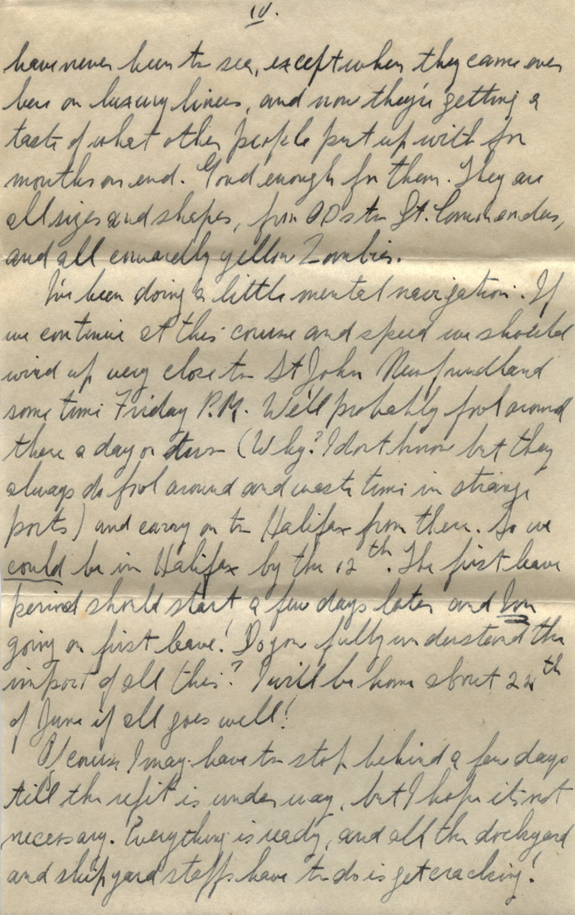 IV.
have never been to sea, except when they came over
here on luxury liners, and now they're getting a
taste of what other people put up with for
months on end. Good enough for them. They are
all sizes and shapes, from ODs to Lt. Commanders,
and all cowardly yellow Zombies.
I've been doing a little mental navigation. If
we continue at this course and speed we should
wind up very close to St John Newfoundland
some time Friday P.M. We'll probably fool around
there a day or two (Why? I dont know but they
always do fool around and waste time in strange
ports) and carry on to Halifax from there. So we
could be in Halifax by the 12th. The first leave
period should start a few days later and I'm
going on first leave! Do you fully understand the
import of all this? I will be home about 22th
of June if all goes well!
Of course I may have to stop behind a few days
till the refit is under way, but I hope its not
necessary. Everything is ready, and all the dockyard
and shipyard staffs have to do is get cracking!